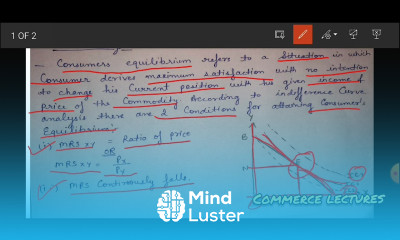 1 OF 2
- Consumers equilibrium refers to a Situation in which
Consumer derives maximum Satisfaction with no intention
to change his Current position with his given income &
price of the Commodity According to indifference Curve
analysis there are 2 Conditions for attaining Consumer's
Equilibrium.
MRSxy = Ratio of price
OR
MRSxy = Px
Py
MRS Continuously falls.
B
N
E
Mind
Luster
COMMERCE LECTURES